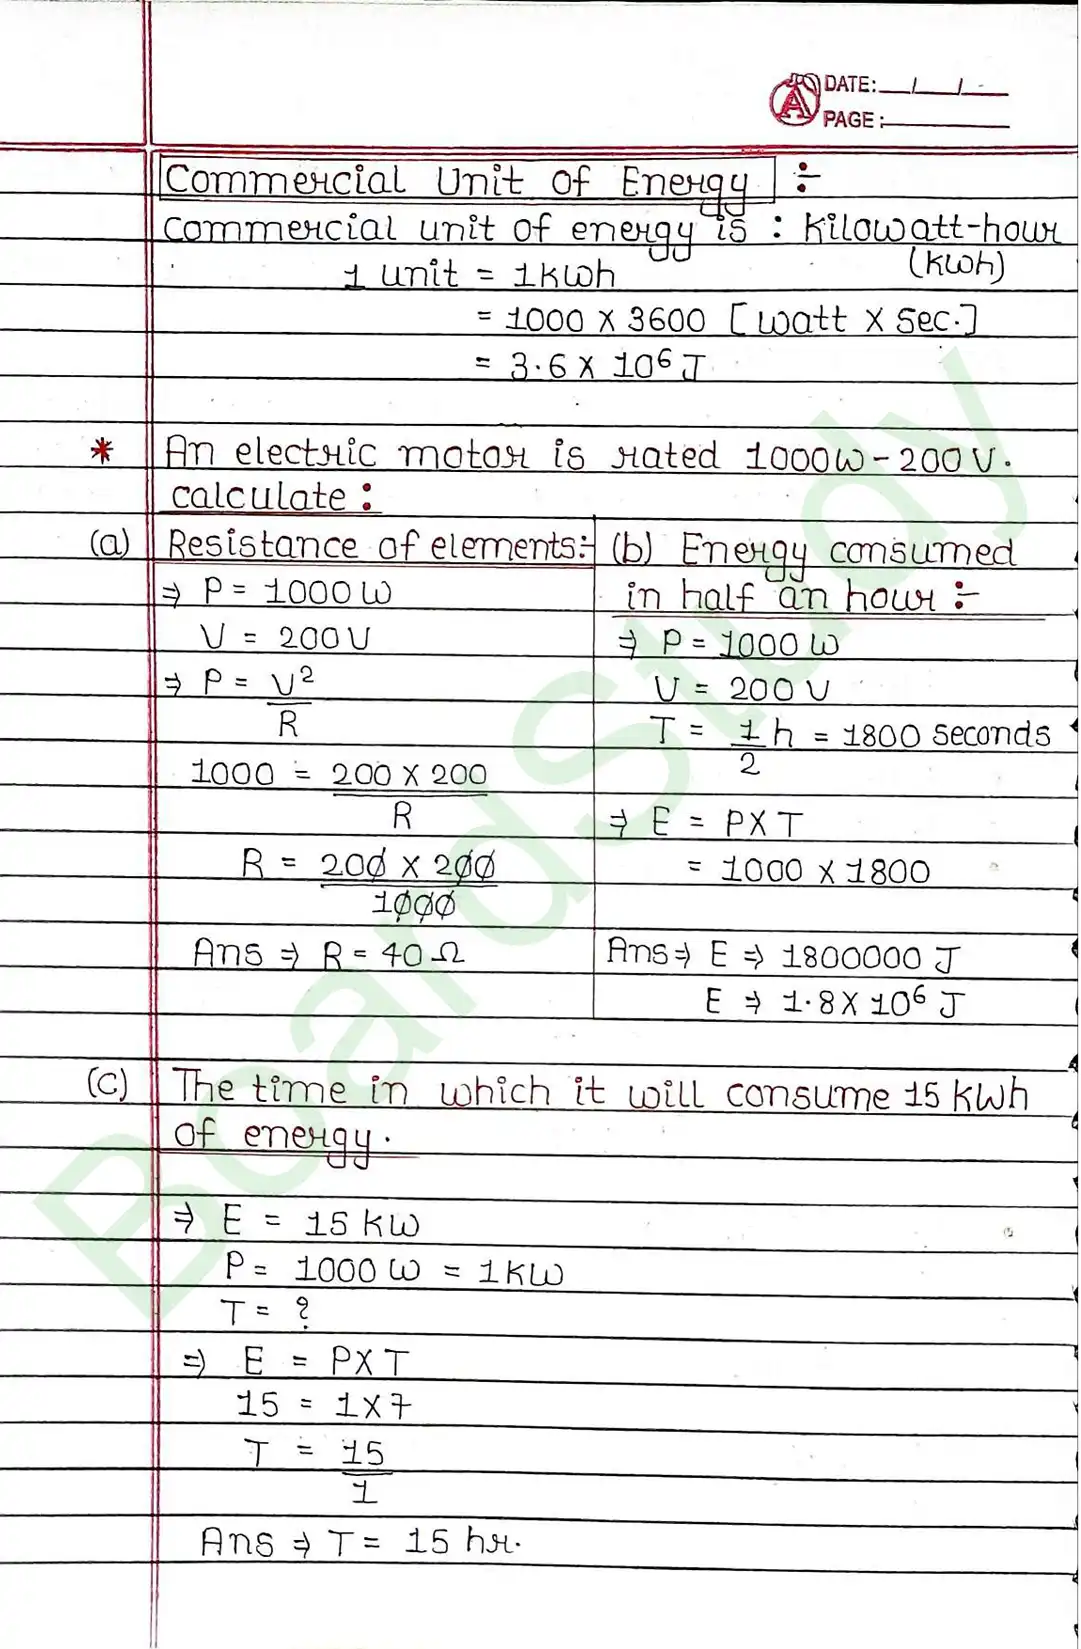 DATE: / /
PAGE:
Commercial Unit of Energy :-
commercial unit of energy is : kilowatt-hour
(kwh)
1 unit = 1kwh
= 1000 X 3600 [watt X Sec.]
= 3.6 X 10⁶ J
* An electric motor is rated 1000W - 200V.
calculate :
(a) Resistance of elements:-
⇒ P = 1000 W
V = 200V
⇒ P = V²
R
1000 = 200 X 200
R
R = 200 X 200
1000
Ans ⇒ R = 40 Ω
(b) Energy consumed
in half an hour :-
⇒ P = 1000 W
V = 200 V
T = 1 h = 1800 Seconds
2
⇒ E = PXT
= 1000 X 1800
Ans⇒ E ⇒ 1800000 J
E ⇒ 1.8 X 10⁶ J
(c) The time in which it will consume 15 kwh
of energy.
⇒ E = 15 KW
P = 1000 W = 1KW
T = ?
⇒ E = PXT
15 = 1X7
T = 15
1
Ans ⇒ T = 15 hr.
BoardStudy